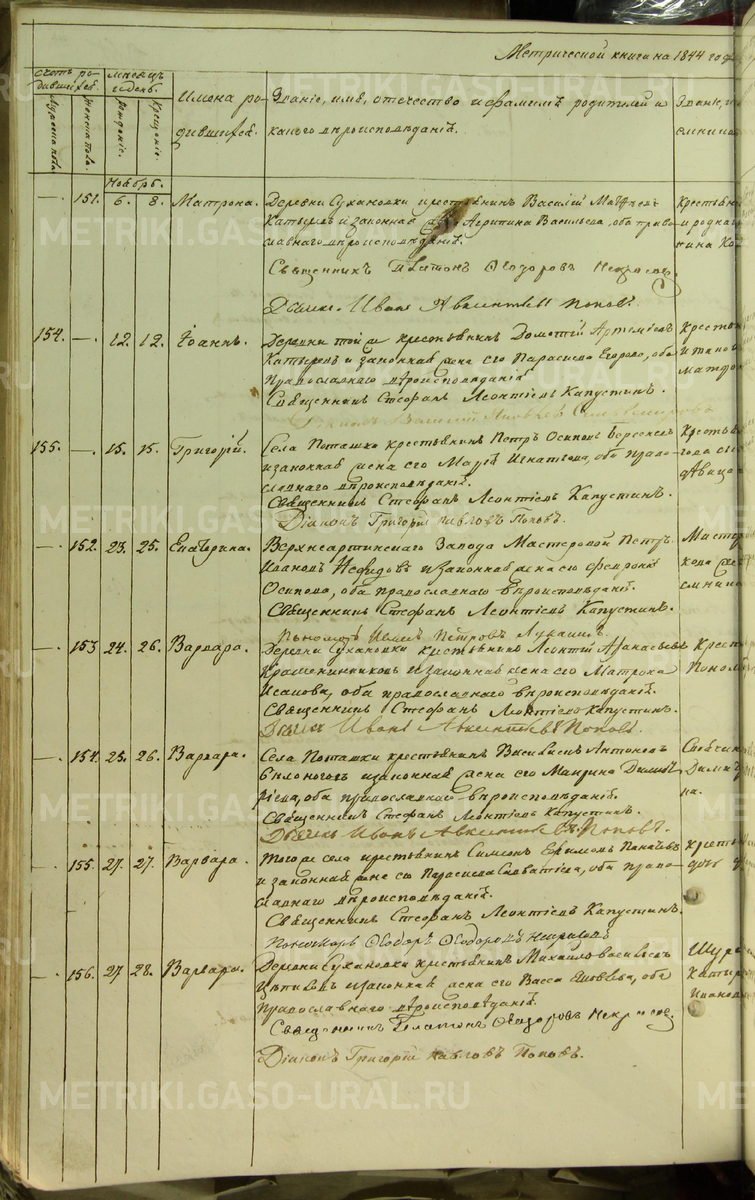 Метрической книги на 1844 год
счетъ ро-
дившихся.
мѣсяцъ
и день.
Мужеска пола.
Женска пола.
Рожденіе.
Крещеніе.
Имена ро-
дившихся.
Званіе, имя, отечество и фамилія родителей и
какаго вѣроисповѣданія.
Званіе, и
фамилі
Ноябрь.
—. 151. 6. 8. Матрона. Деревни Сухановки крестьянинъ Василій Матвѣевъ
Катыревъ и законная Агрипина Васильева, оба право-
славнаго вѣроисповѣданія.
Священникъ Платонъ Ѳеодоровъ Некрасовъ
Дьячекъ Иванъ Авксентьевъ Поповъ.
Крестьян
и родна
154. —. 12. 12. Іоаннъ. Деревни той же крестьянинъ Дометій Артемьевъ
Катыревъ и законная жена его Параскева Егорова, оба
Православнаго вѣроисповѣданія
Священникъ Стефанъ Леонтіевъ Капустинъ.
Кресть
155. —. 15. 15. Григорій. Села Поташки крестьянинъ Петръ Осиповъ
и законная жена его Марія Игнатьева, оба право-
славнаго вѣроисповѣданія.
Священникъ Стефанъ Леонтіевъ Капустинъ.
Діаконъ Григорій Павловъ Поповъ.
Кресть
дѣвица
—. 152. 23. 25. Екатерина. Верхнеартинскаго Завода Мастеровой Петръ
Ивановъ Нефедовъ и законная жена его Февронія
Осипова, оба православнаго вѣроисповѣданія.
Священникъ Стефанъ Леонтіевъ Капустинъ.
Пономарь Иванъ Петровъ Лукинъ.
Мастер
—. 153. 24. 26. Варвара. Деревни Сухановки крестьянинъ Леонтій Афанасьевъ
Крашенинниковъ и законная жена его Матрона
Исакова, оба православнаго вѣроисповѣданія.
Священникъ Стефанъ Леонтіевъ Капустинъ.
Дьячекъ Иванъ Авксентьевъ Поповъ.
Крест
Поном
—. 154. 25. 26. Варвара. Села Поташки крестьянинъ Василій Антоновъ
Бѣлоноговъ и законная жена его Марина Димит-
ріева, оба православнаго вѣроисповѣданія.
Священникъ Стефанъ Леонтіевъ Капустинъ.
Дьячекъ Иванъ Авксентьевъ Поповъ.
Дими
на.
—. 155. 27. 27. Варвара. Того же села крестьянинъ Симеонъ Ефимовъ
и законная жена его Параскева Савватіева, оба право-
славнаго вѣроисповѣданія.
Священникъ Стефанъ Леонтіевъ Капустинъ.
Пономарь Ѳеодоръ Ѳеодоровъ Некрасовъ
Кресть
дочь
—. 156. 27. 28. Варвара. Деревни Сухановки крестьянинъ Михаилъ Васильевъ
и законная жена его Васса Яковлева, оба
Православнаго вѣроисповѣданія.
Священникъ Платонъ Ѳеодоровъ Некрасовъ.
Діаконъ Григорій Павловъ Поповъ.
Катыр
Иванов
METRIKI.GASO-URAL.RU